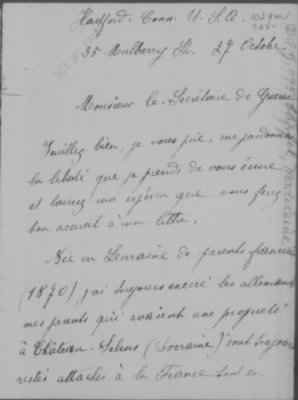 Hartford. Conn. U. S. A.
35 Mulberry St. 27 Octobre
Monsieur le Secrétaire de Guerre
Veuillez bien, je vous prie, me pardonner
la liberté que je prends de vous écrire
et laissez moi espérer que vous ferez
bon accueil à ma lettre.
Née en Lorraine de parents français
(1870) j'ai toujours les allemands
mes parents qui avaient une propriété
à Château-Salins (Lorraine) sont toujours
restés attachés à la France tout en